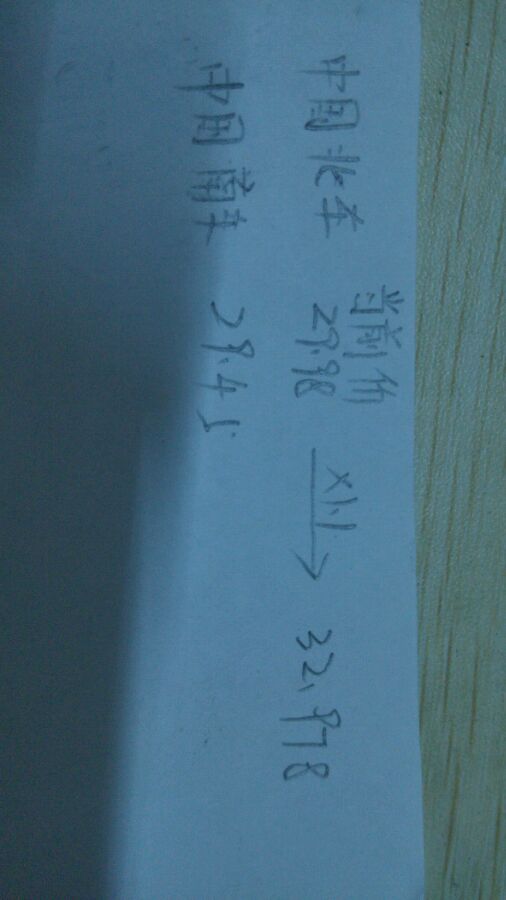 当前价
中国北车 29.98 ×1.1 → 32.978
中国南车 29.45